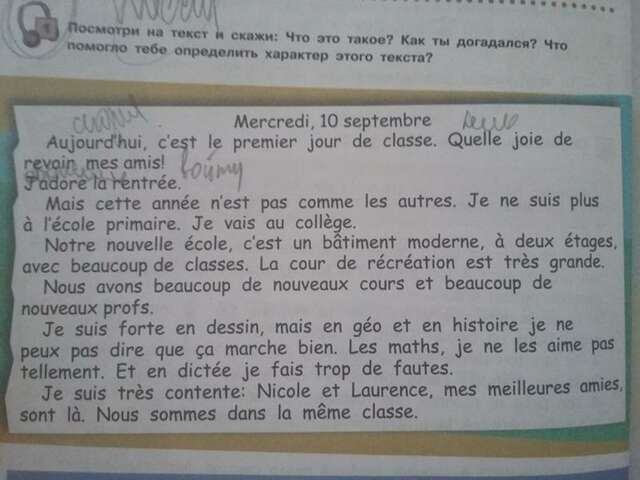 Посмотри на текст и скажи: Что это такое? Как ты догадался? Что
помогло тебе определить характер этого текста?
Mercredi, 10 septembre
Aujourd'hui, c'est le premier jour de classe. Quelle joie de
revoir mes amis!
J'adore la rentrée.
Mais cette année n'est pas comme les autres. Je ne suis plus
à l'école primaire. Je vais au collège.
Notre nouvelle école, c'est un bâtiment moderne, à deux étages,
avec beaucoup de classes. La cour de récréation est très grande.
Nous avons beaucoup de nouveaux cours et beaucoup de
nouveaux profs.
Je suis forte en dessin, mais en géo et en histoire je ne
peux pas dire que ça marche bien. Les maths, je ne les aime pas
tellement. Et en dictée je fais trop de fautes.
Je suis très contente: Nicole et Laurence, mes meilleures amies,
sont là. Nous sommes dans la même classe.